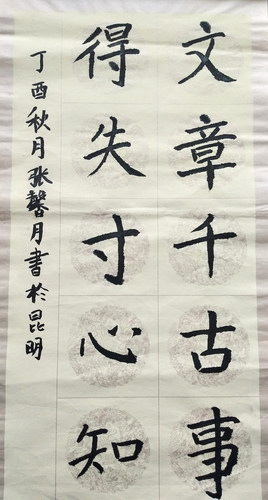 文章千古事
得失寸心知
丁酉秋月张馨月書於昆明